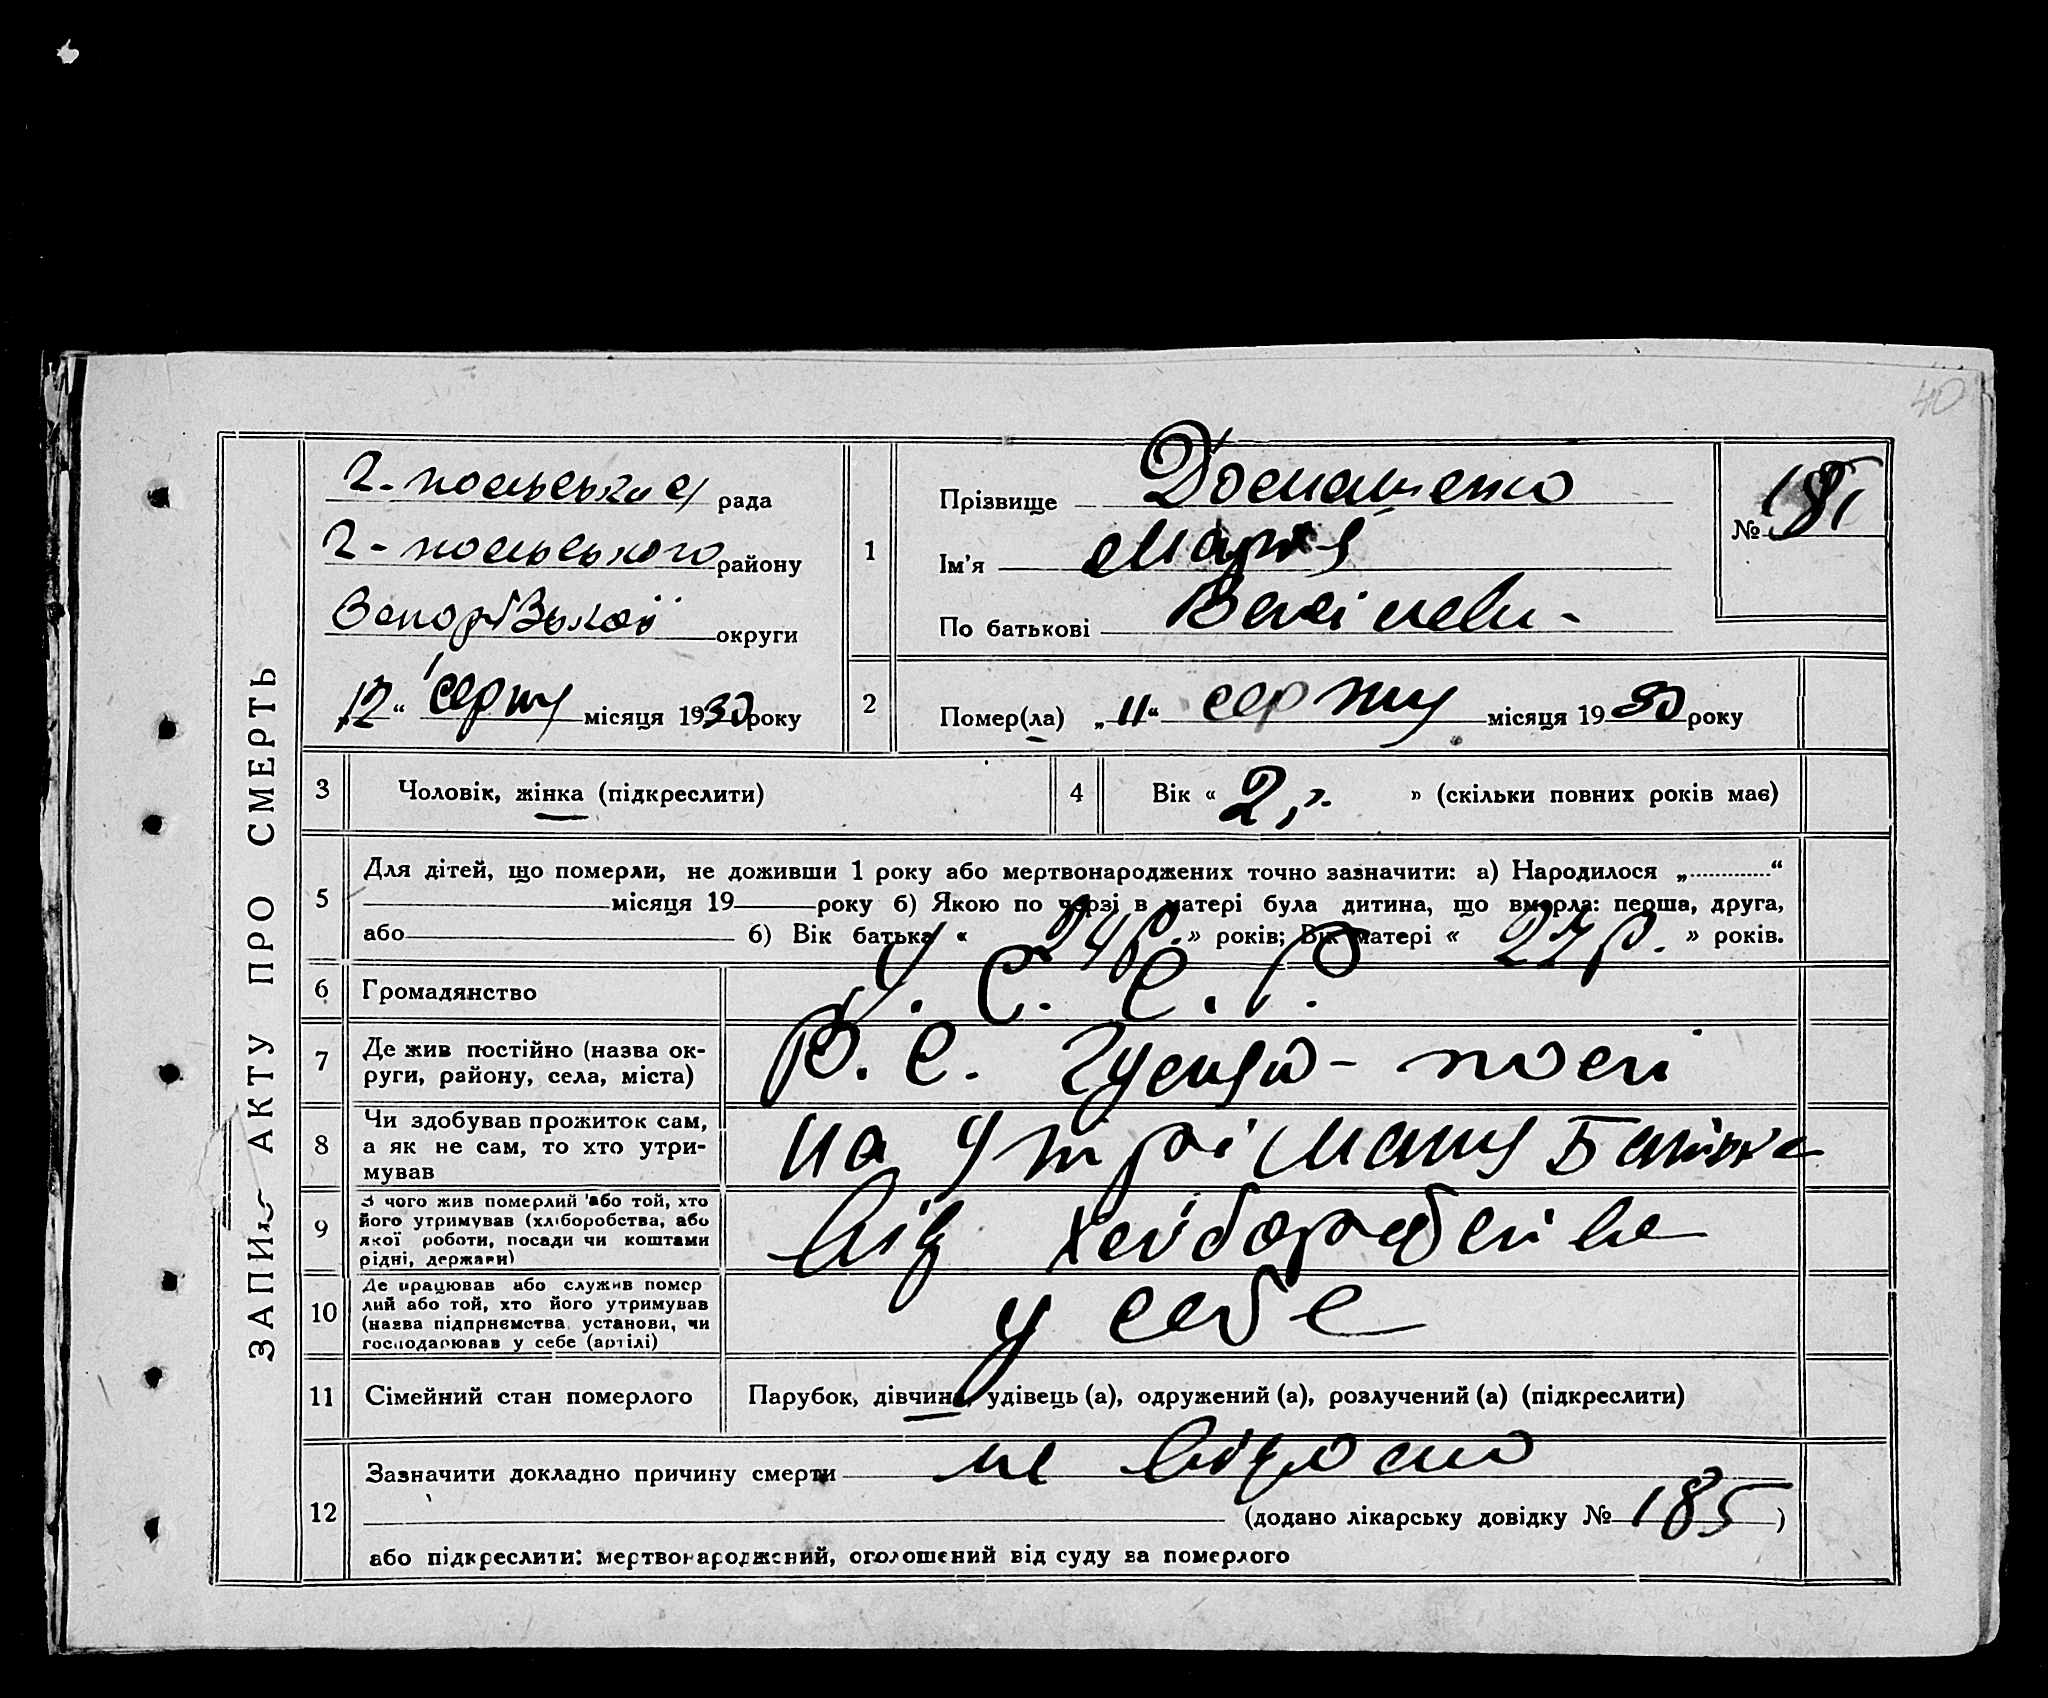 40
ЗАПИС АКТУ ПРО СМЕРТЬ
Г-польська рада
Г-польського району
Запорізької округи
12 “ серпня місяця 1930 року
1
Прізвище Домашенко
Ім'я Марія
По батькові
№ 185
2
Помер(ла) „ 11 “ серпня місяця 1930 року
3
Чоловік, жінка (підкреслити)
4
Вік « 2 р. » (скільки повних років має)
5
Для дітей, що померли, не доживши 1 року або мертвонароджених точно зазначити: а) Народилося „.............“
місяця 19 року б) Якою по черзі в матері була дитина, що вмерла: перша, друга,
або б) Вік батька « 24 р. » років; Вік матері « 27 р. » років.
6
Громадянство
У. С. С. Р.
7
Де жив постійно (назва ок-
руги, району, села, міста)
р. с. Гуляй-полі
8
Чи здобував прожиток сам,
а як не сам, то хто утри-
мував
на утріманя Батька
9
З чого жив померлий або той, хто
його утримував (хліборобства, або
якої роботи, посади чи коштами
рідні, держави)
від хліборобства
10
Де працював або служив помер
лий або той, хто його утримував
(назва підприємства, установи, чи
господарював у себе (артілі)
у себе
11
Сімейний стан померлого
Парубок, дівчина, удівець (а), одружений (а), розлучений (а) (підкреслити)
12
Зазначити докладно причину смерти не відомо
(додано лікарську довідку № 185 )
або підкреслити: мертвонароджений, оголошений від суду за померлого